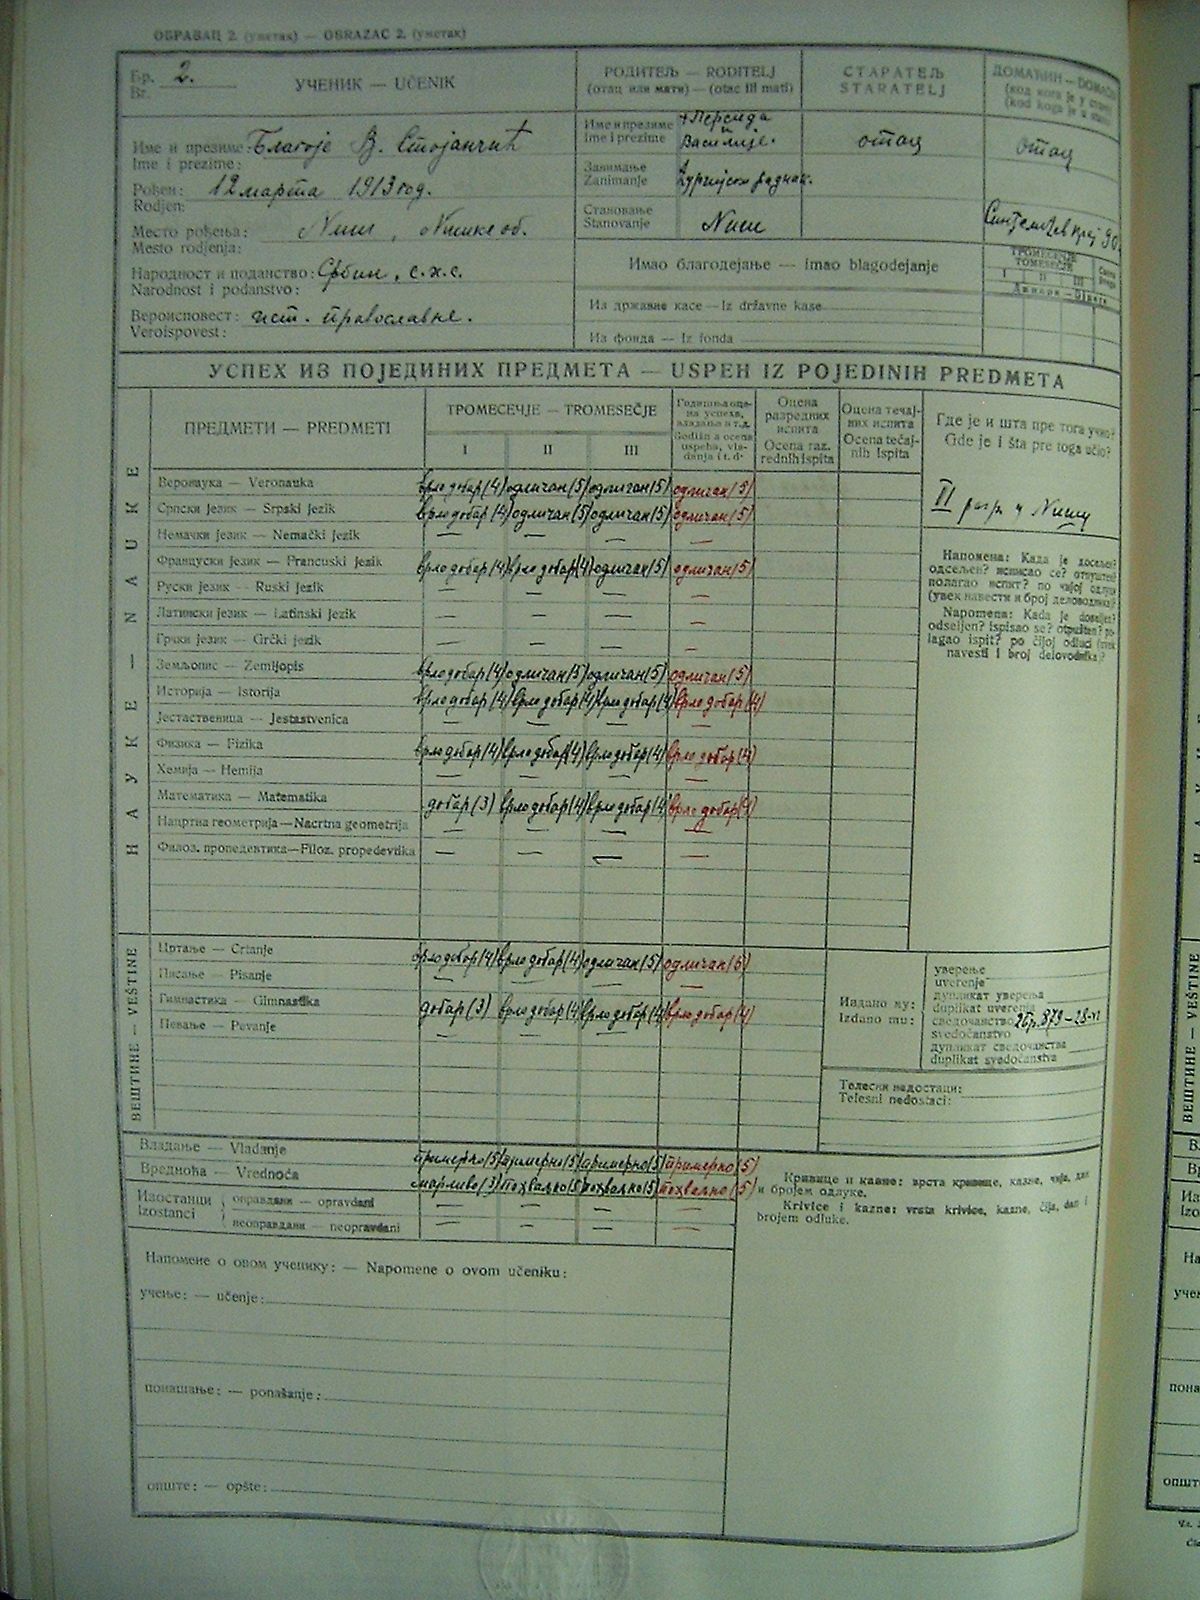 ОБРАЗАЦ 2. (уметак) — OBRAZAC 2. (umetak)
Бр. 2.
Br.
УЧЕНИК — UČENIK
РОДИТЕЉ — RODITELJ
(отац или мати) — (otac ili mati)
СТАРАТЕЉ
STARATELJ
ДОМАЋИН — DOMAĆIN
(код кога је у стану)
(kod koga je u stanu)
Име и презиме: Благоје В. Стојанчић
Ime i prezime:
Рођен: 12 марта 1913 год.
Rodjen:
Место рођења: Ниш, Нишке об.
Mesto rodjenja:
Народност и поданство: Србин, с.х.с.
Narodnost i podanstvo:
Вероисповест: ист. православне.
Veroispovest:
Име и презиме + Персида
Ime i prezime и Василије.
Занимање
Zanimanje радник.
Становање
Stanovanje Ниш
отац
отац
Синђелићев крај 90
Имао благодејање — imao blagodejanje
Из државне касе — Iz državne kase
Из фонда — Iz fonda
ТРОМЕСЕЧЈЕ
TOMESEČJE
I II III
Динара — Dinara
УСПЕХ ИЗ ПОЈЕДИНИХ ПРЕДМЕТА — USPEH IZ POJEDINIH PREDMETA
НАУКЕ — NAUKE
ПРЕДМЕТИ — PREDMETI
ТРОМЕСЕЧЈЕ — TROMESEČJE
I II III
Годишња оцена
успеха,
владања и т.д.
Godišnja ocena
uspeha, vla-
danja i t. d.
Оцена
разредних
испита
Ocena raz.
rednih ispita
Оцена течај-
них испита
Ocena tečaj-
nih ispita
Где је и шта пре тога учио?
Gde je i šta pre toga učio?
II разр. у Нишу
Напомена: Када је досељен?
одсељен? исписао се? отпуштен?
полагао испит? по чијој одлуци
(увек навести и број деловодника)?
Napomena: Kada je doseljen?
odseljen? ispisao se? otpušten? po-
lagao ispit? po čijoj odluci (uvek
navesti i broj delovodnika)?
Веронаука — Veronauka врло добар (4) одличан (5) одличан (5) одличан (5)
Српски језик — Srpski jezik врло добар (4) одличан (5) одличан (5) одличан (5)
Немачки језик — Nemački jezik — — — —
Француски језик — Francuski jezik врло добар (4) врло добар (4) одличан (5) одличан (5)
Руски језик — Ruski jezik — — — —
Латински језик — Latinski jezik — — — —
Грчки језик — Grčki jezik — — — —
Земљопис — Zemljopis врло добар (4) одличан (5) одличан (5) одличан (5)
Историја — Istorija врло добар (4) врло добар (4) врло добар (4) врло добар (4)
Јестаственица — Jestastvenica — — — —
Физика — Fizika врло добар (4) врло добар (4) врло добар (4) врло добар (4)
Хемија — Hemija — — — —
Математика — Matematika добар (3) врло добар (4) врло добар (4) врло добар (4)
Нацртна геометрија — Nacrtna geometrija — — — —
Филоз. пропедевтика — Filoz. propedevtika — — — —
ВЕШТИНЕ — VEŠTINE
Цртање — Crtanje врло добар (4) врло добар (4) одличан (5) одличан (5)
Писање — Pisanje — — — —
Гимнастика — Gimnastika добар (3) врло добар (4) врло добар (4) врло добар (4)
Певање — Pevanje — — — —
Издано му:
Izdano mu:
уверење
uverenje
дупликат уверења
duplikat uverenja
сведочанство Бр. 879 — 28-VI
svedočanstvo
дупликат сведочанства
duplikat svedočanstva
Телесни недостаци:
Telesni nedostaci:
Владање — Vladanje примерно (5) примерно (5) примерно (5) примерно (5)
Вредноћа — Vrednoća марљиво (3) похвално (5) похвално (5) похвално (5)
Изостанци
Izostanci
оправдани — opravdani — — — —
неоправдани — neopravdani — — — —
Кривице и казне: врста кривице, казне, чија, дан
и бројем одлуке.
Krivice i kazne: vrsta krivice, kazne, čija, dan i
brojem odluke.
Напомене о овом ученику: — Napomene o ovom učeniku:
учење: — učenje:
понашање: — ponašanje:
опште: — opšte: